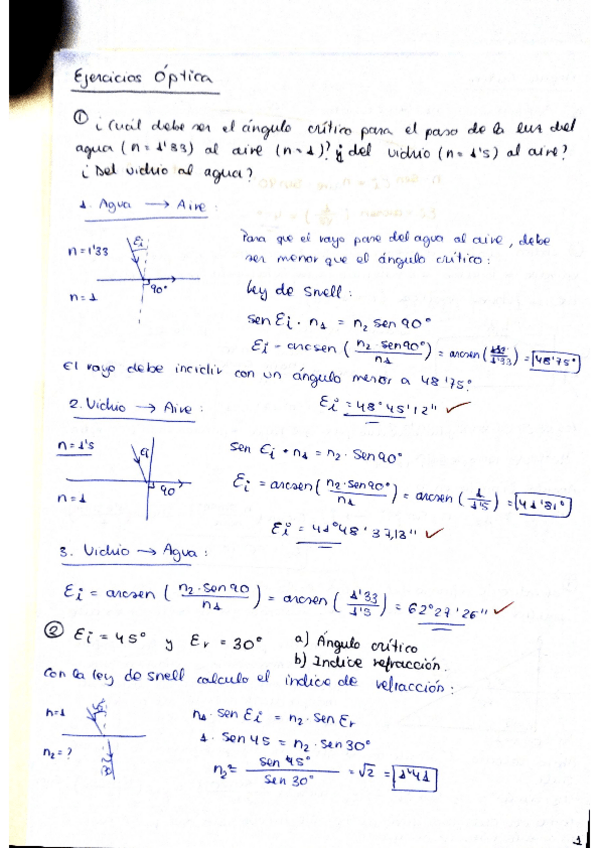 Ejercicios Óptica
① ¿Cuál debe ser el ángulo crítico para el paso de la luz del
agua (n = 1'33) al aire (n = 1)? ¿ del vidrio (n = 1'5) al aire?
¿Del vidrio al agua?
1. Agua → Aire :
n = 1'33
Ei
90°
n = 1
Para que el rayo pase del agua al aire, debe
ser menor que el ángulo crítico:
Ley de Snell :
sen Ei · n1 = n2 sen 90°
Ei = arcsen ( n2 · sen90° / n1 ) = arcsen ( / 1'33 ) = 48'75°
El rayo debe incidir con un ángulo menor a 48'75°
Ei = 48° 45' 12" ✓
2. Vidrio → Aire :
n = 1'5
Ei
90°
n = 1
sen Ei · n1 = n2 · Sen90°
Ei = arcsen ( n2 · sen90° / n1 ) = arcsen ( 1 / 1'5 ) = 41'81°
Ei = 41° 48' 37,13" ✓
3. Vidrio → Agua :
Ei = arcsen ( n2 · sen 90 / n1 ) = arcsen ( 1'33 / 1'5 ) = 62° 27' 26" ✓
② Ei = 45° y Er = 30° a) Ángulo crítico
b) Indice refracción.
Con la ley de snell calculo el indice de refracción :
n=1
45°
n2 = ?
n1 · sen Ei = n2 · sen Er
1 · sen 45 = n2 · sen 30°
n2 = sen 45° / sen 30° = √2 = 1'41
1